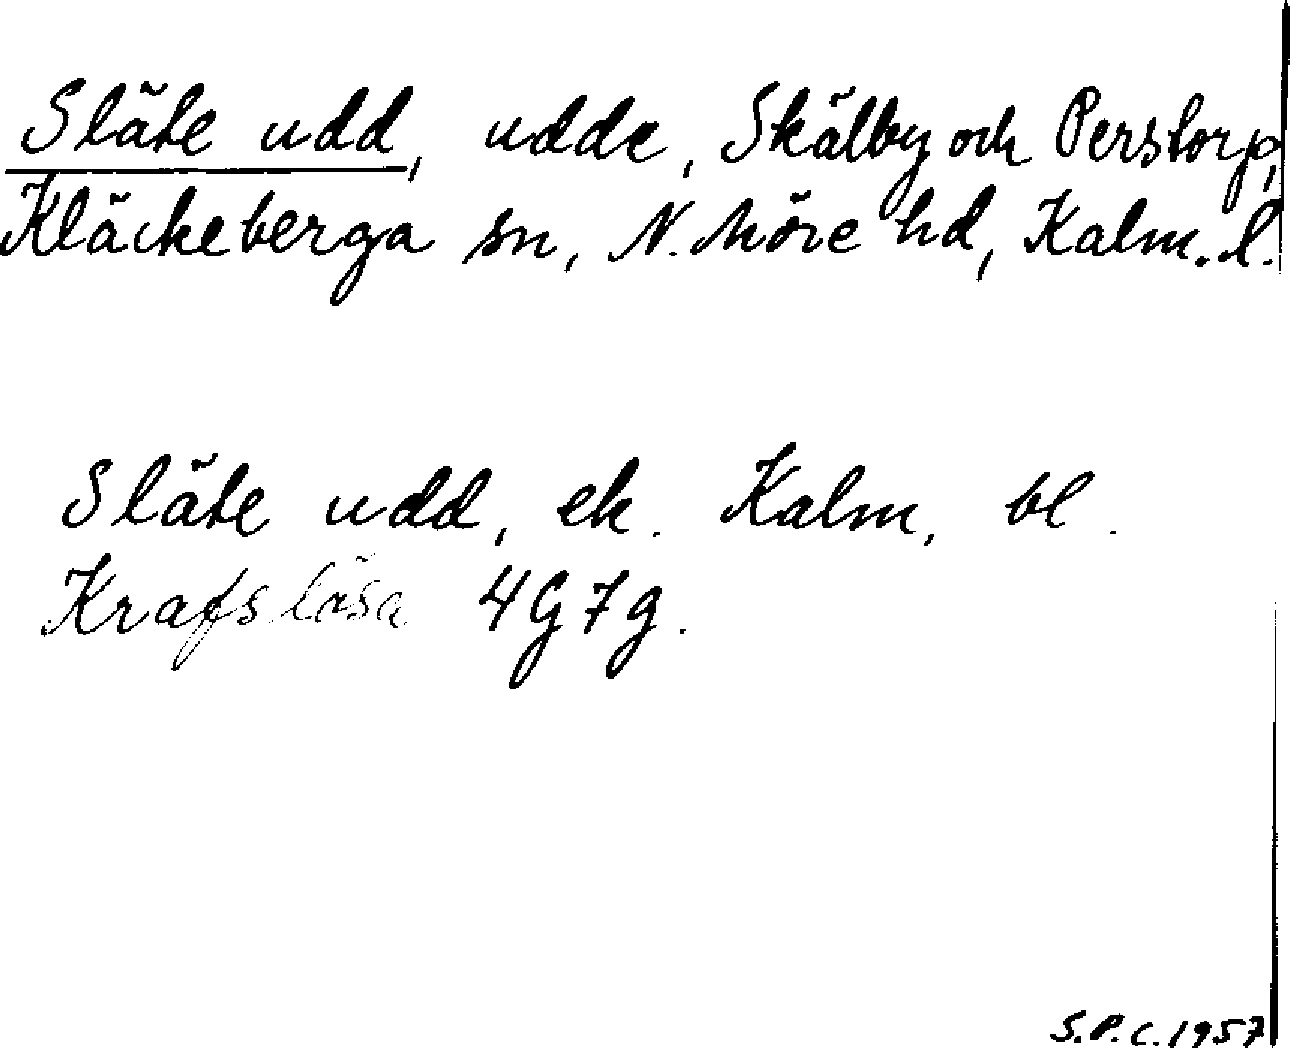 Släte udd, udde, Skälby och Perstorp,
Kläckeberga sn, N. Möre hd, Kalm. l.
Släte udd, ek. Kalm, bl.
Krafslösa 4G7g.
S.P.C. 1957